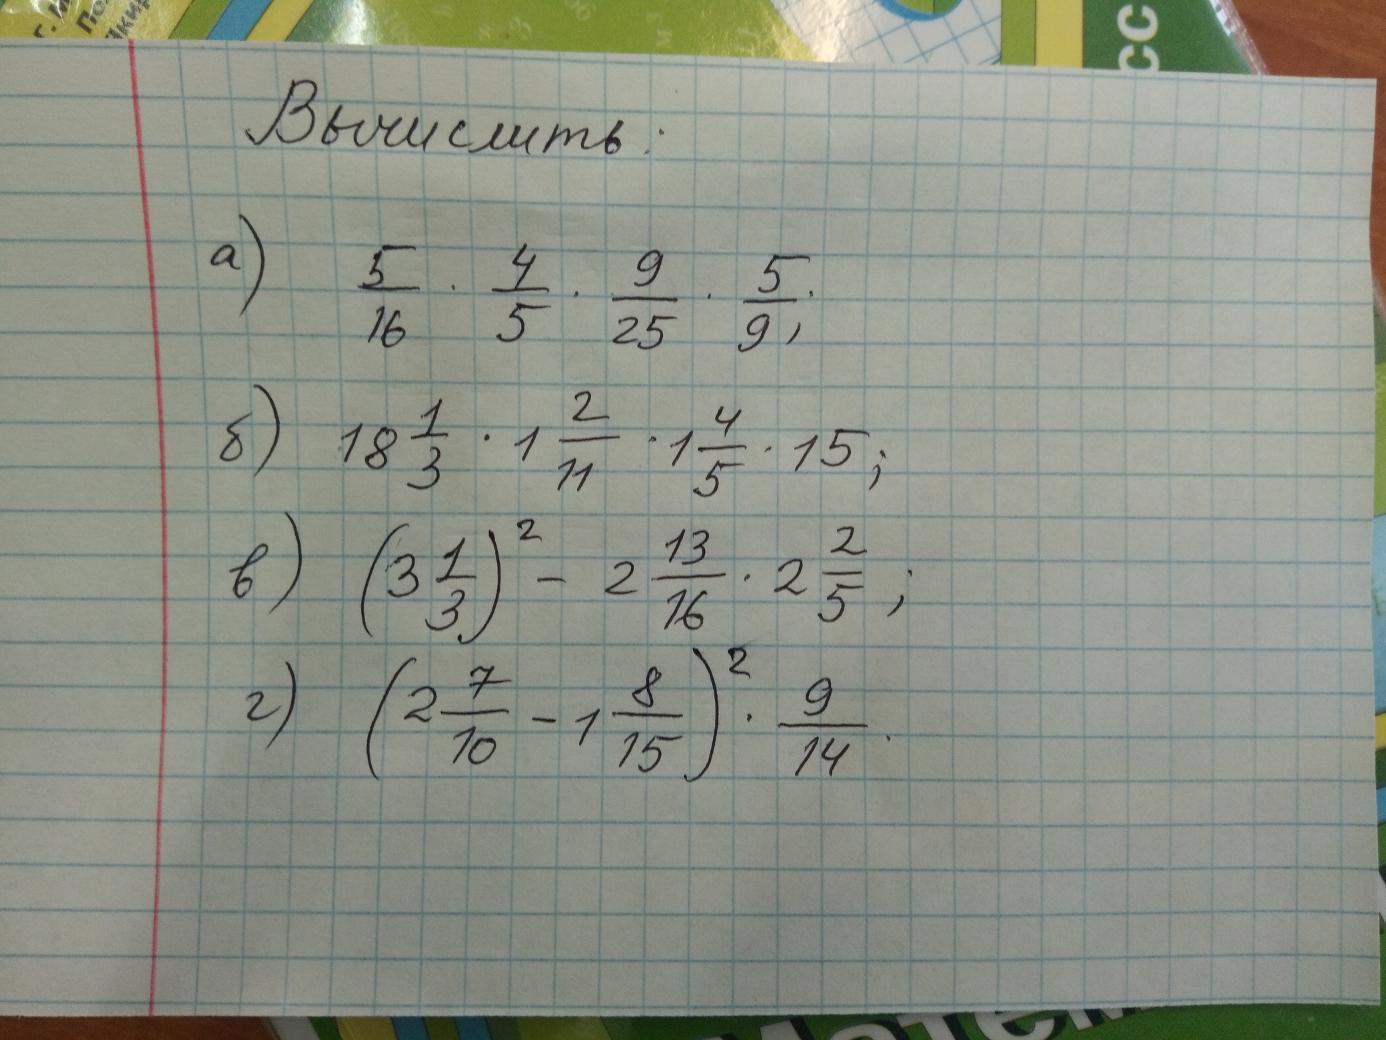 Вычислить:
а) 5/16 · 4/5 · 9/25 · 5/9;
б) 18 1/3 · 1 2/11 · 1 4/5 · 15;
в) (3 1/3)² - 2 13/16 · 2 2/5;
г) (2 7/10 - 1 8/15)² · 9/14.